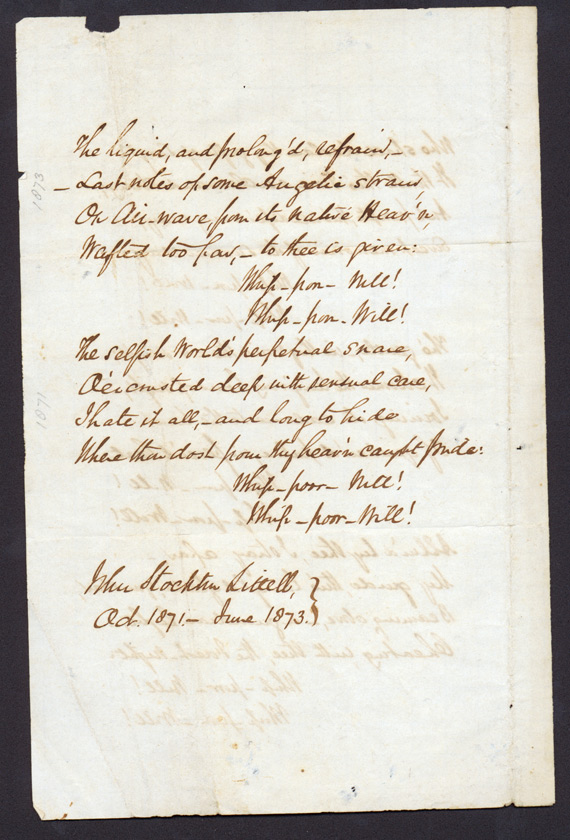 The liquid, and prolong'd, refrain,-
- Last notes of some Angelic strain,
On Air-wave, from its native Heav'n,
Wafted too far,- to thee is given:
Whip-poor-Will!
Whip-poor-Will!
The selfish World's perpetual snare,
O'ercrusted deep with sensual care,
I hate it all,- and long to hide
Where thou dost pour thy heav'n caught pride:
Whip-poor-Will!
Whip-poor-Will!
John Stockton Littell,
Oct. 1871.- June 1873.
1873
1871